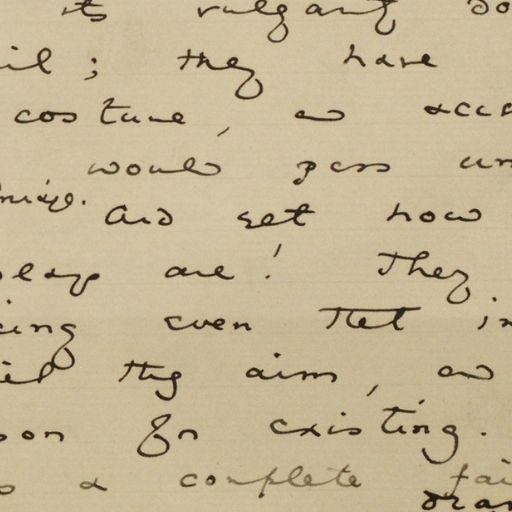 its vulgarity do
il; they have
costume, an accu
would pass un
And yet how
plays are! They
cing even that in
their aim, an
son for existing.
s a complete fai